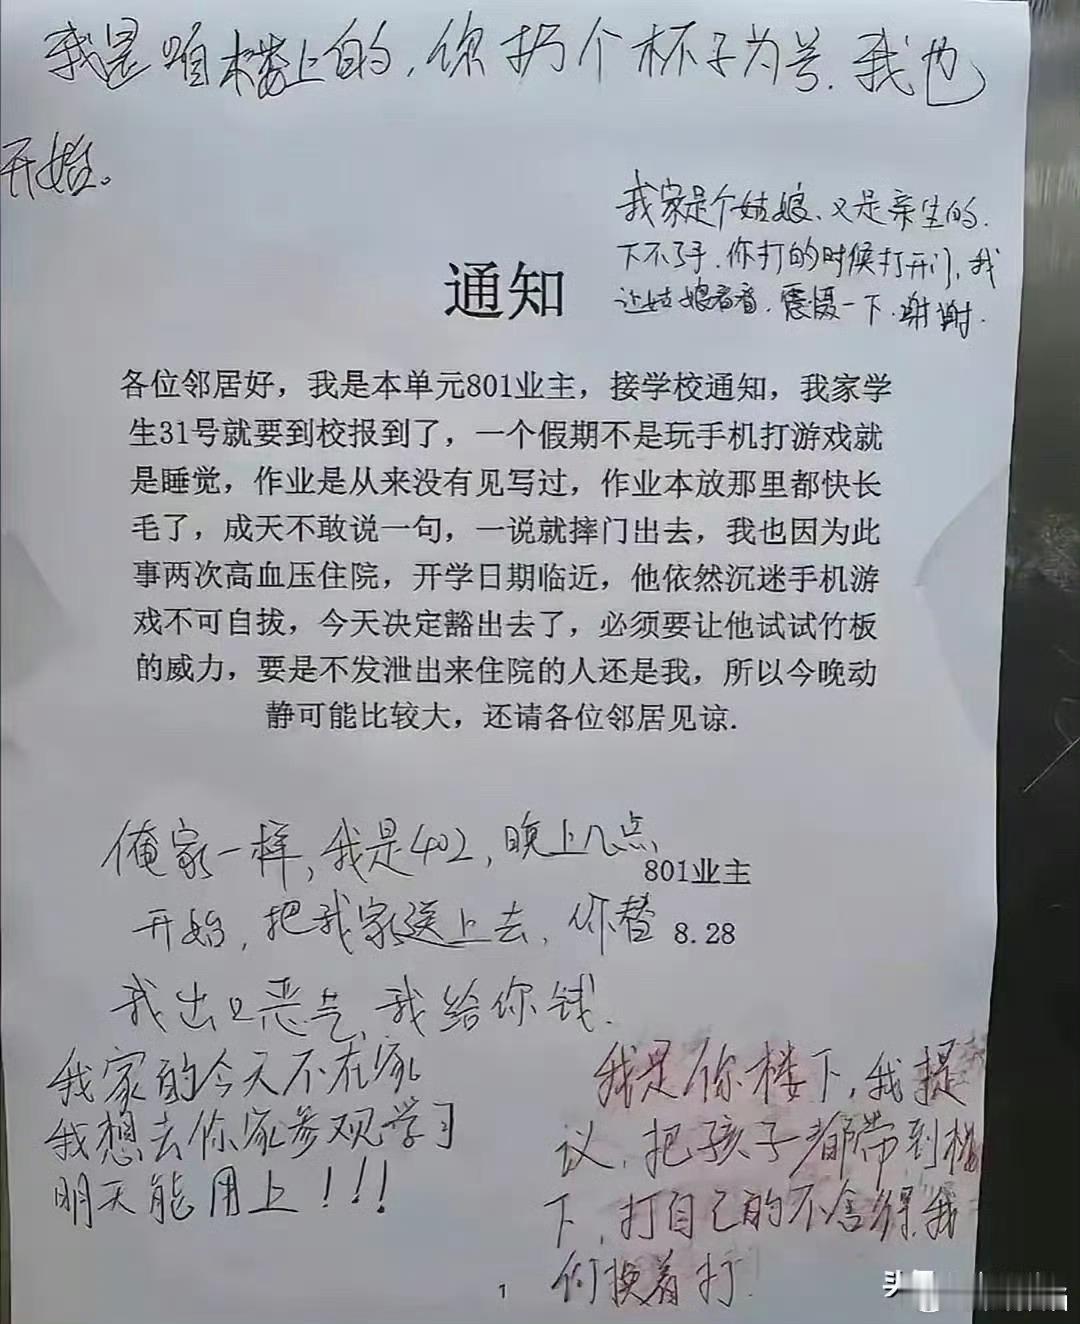 我是咱楼上的，你扔个杯子为号．我也
开始。
我家是个姑娘、又是亲生的．
下不了手．你打的时候打开门，我
让姑娘看看．震慑一下．谢谢．
通知
各位邻居好，我是本单元801业主，接学校通知，我家学
生31号就要到校报到了，一个假期不是玩手机打游戏就
是睡觉，作业是从来没有见写过，作业本放那里都快长
毛了，成天不敢说一句，一说就摔门出去，我也因为此
事两次高血压住院，开学日期临近，他依然沉迷手机游
戏不可自拔，今天决定豁出去了，必须要让他试试竹板
的威力，要是不发泄出来住院的人还是我，所以今晚动
静可能比较大，还请各位邻居见谅.
801业主
8.28
俺家一样，我是402，晚上几点
开始，把我家送上去，你替
我出口恶气，我给你钱．
我家的今天不在家
我想去你家参观学习
明天能用上！！！
我是你楼下，我提
议，把孩子都带到楼
下，打自己的不舍得，我
们换着打．
1
头